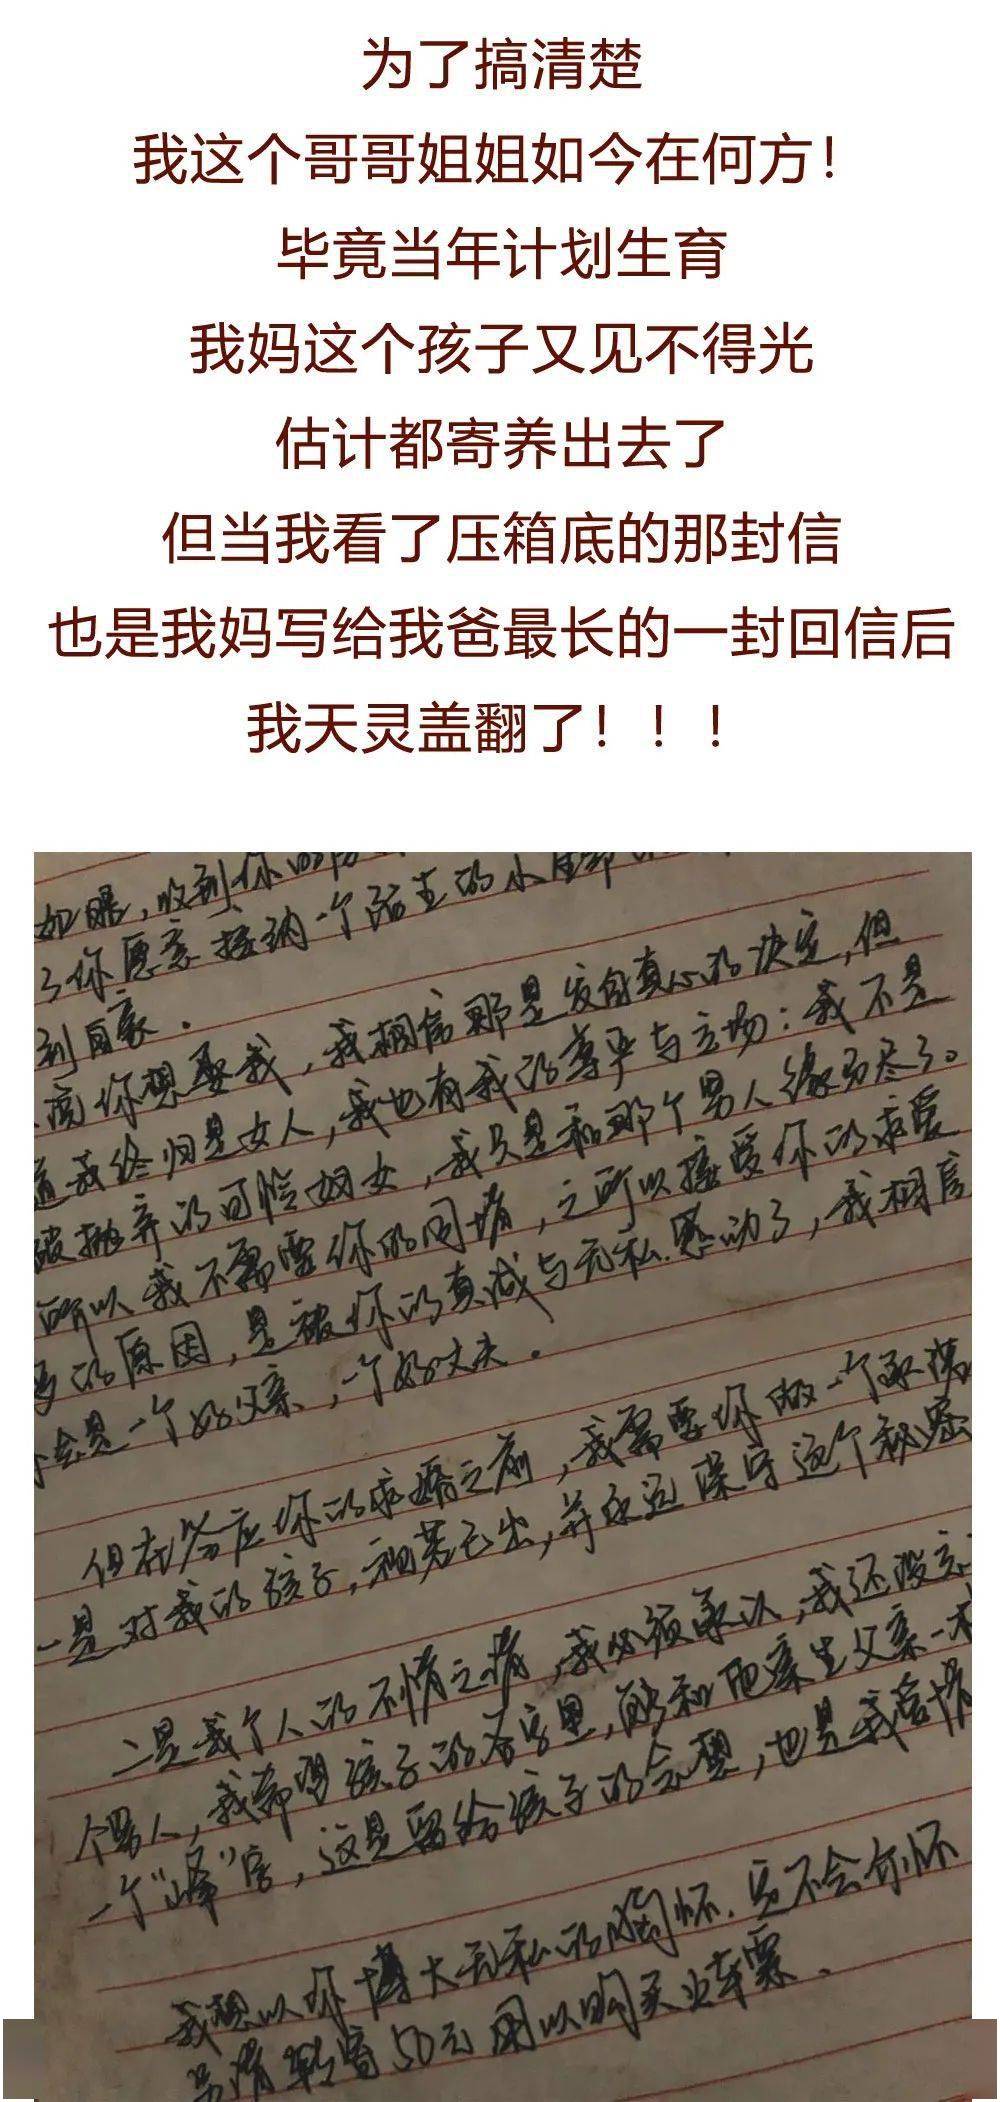 为了搞清楚
我这个哥哥姐姐如今在何方！
毕竟当年计划生育
我妈这个孩子又见不得光
估计都寄养出去了
但当我看了压箱底的那封信
也是我妈写给我爸最长的一封回信后
我天灵盖翻了！！！
如晤，收到你的
了你愿意接纳一个陌生的小生命
到自豪．
你想娶我，我相信那是发自真心的决定，但
我终归是女人，我也有我的尊严与立场：我不是
被抛弃的可怜妇女，我只是和那个男人缘分尽了。
所以我不需要你的同情，之所以接受你的求爱
的原因，是被你的真诚与无私感动了，我相信
会是一个好父亲，一个好丈夫．
但在答应你的求婚之前，我需要你做一个承诺
一是对我的孩子，视若己出，并永远保守这个秘密
二是我个人的不情之请，我必须承认，我还没忘
个男人，我希望孩子的名字里，能和他亲生父亲一样
一个“峰”字，这是留给孩子的念想，也是我
我想以你博大无私的胸怀．定不会介怀
另请转寄50元用以购买火车票．